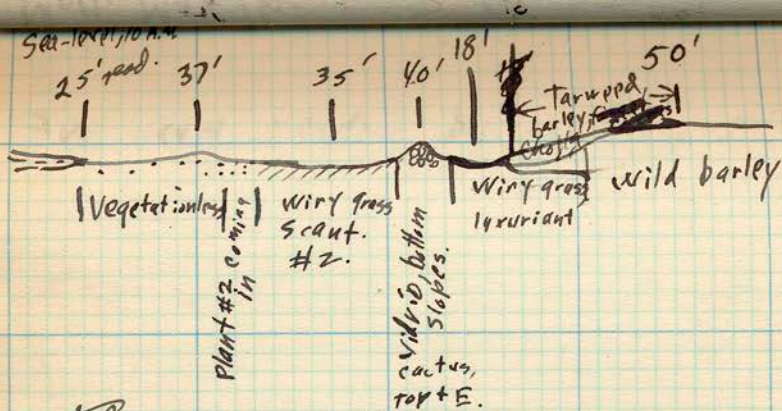 Sea-level, 10 A.M
25' read.
37'
35'
40'
18'
50'
Tarweed
barley,
Cholla
Vegetationless
Plant #2 coming
in
Wiry grass
Scant.
#2.
bottom
slopes.
cactus,
top + E.
Wiry grass
luxuriant
Wild barley